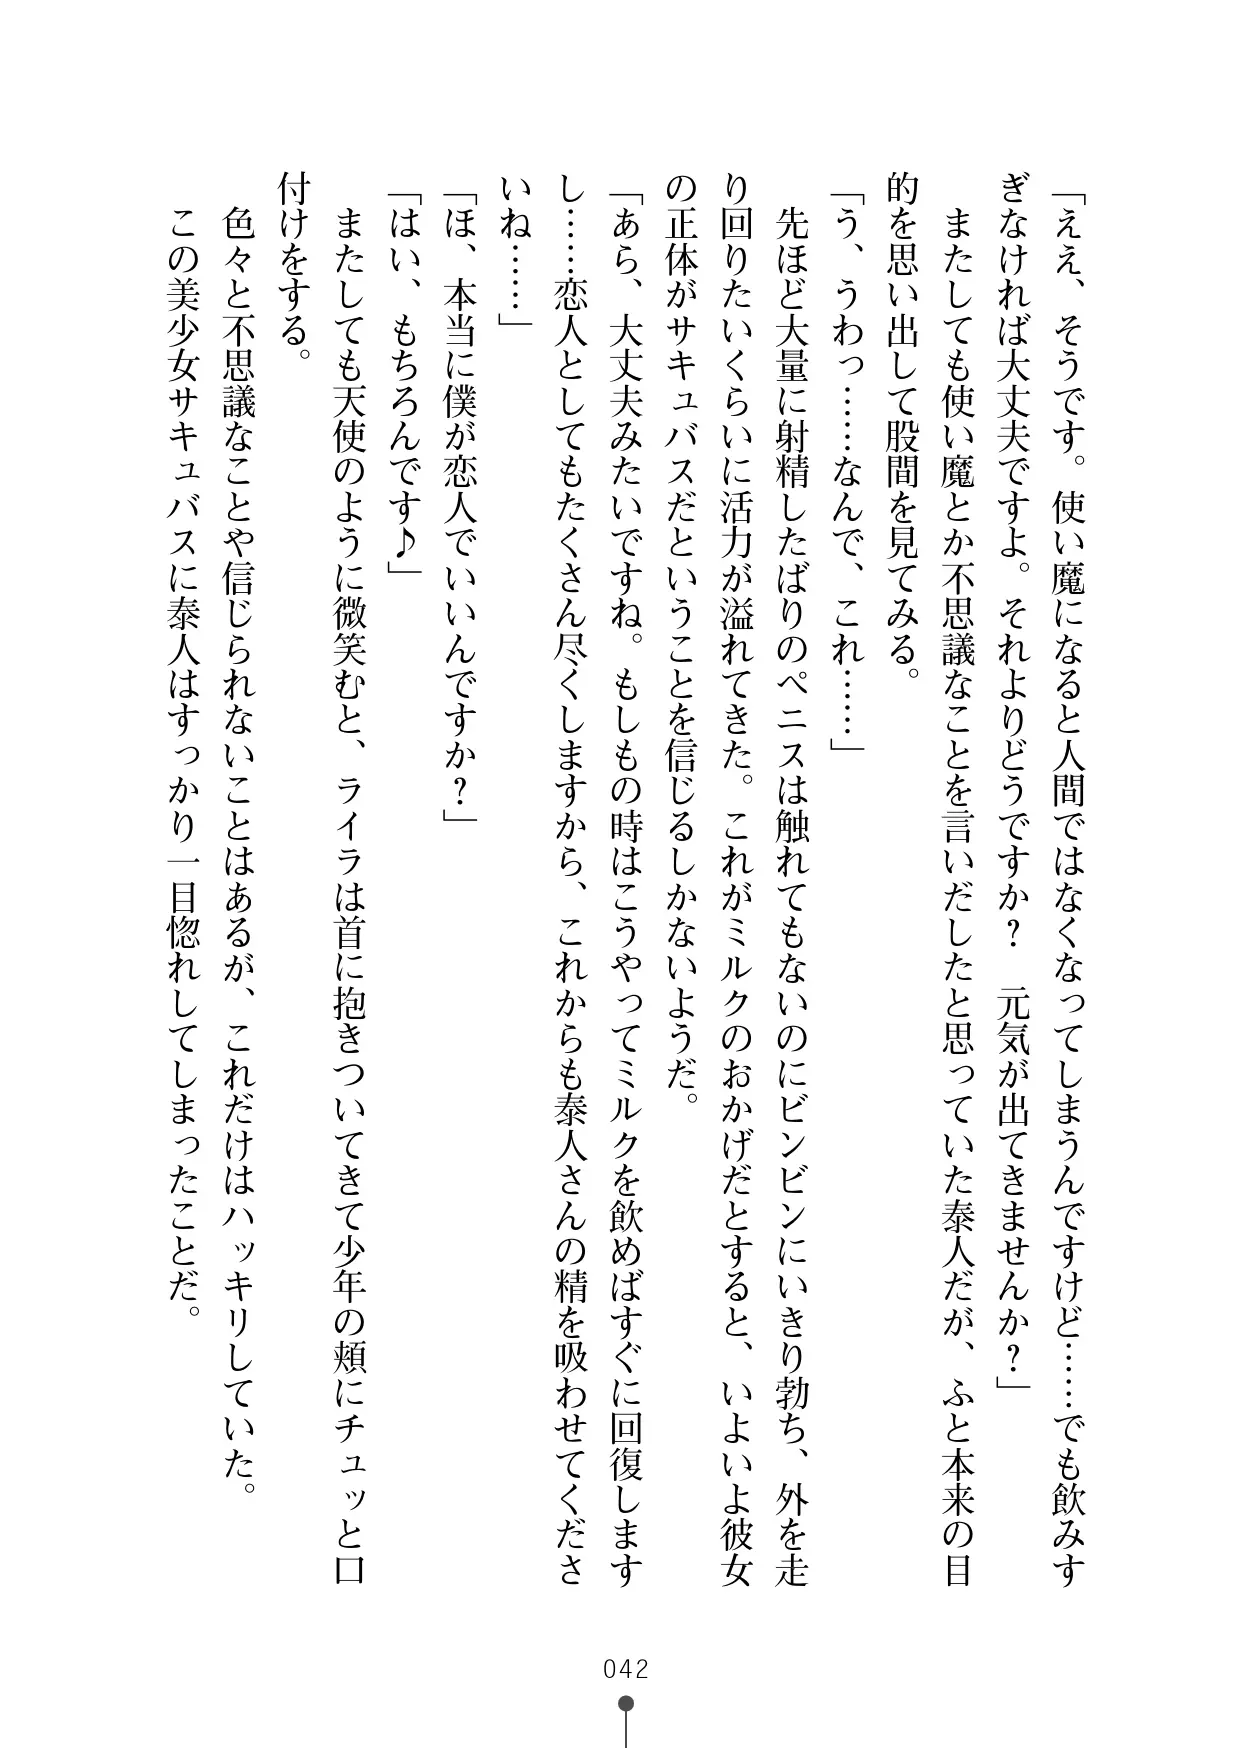 「ええ、そうです。使い魔になると人間ではなくなってしまうんですけど……でも飲みす
ぎなければ大丈夫ですよ。それよりどうですか？　元気が出てきませんか？」
　またしても使い魔とか不思議なことを言いだしたと思っていた泰人だが、ふと本来の目
的を思い出して股間を見てみる。
「う、うわっ……なんで、これ……」
　先ほど大量に射精したばりのペニスは触れてもないのにビンビンにいきり勃ち、外を走
り回りたいくらいに活力が溢れてきた。これがミルクのおかげだとすると、いよいよ彼女
の正体がサキュバスだということを信じるしかないようだ。
「あら、大丈夫みたいですね。もしもの時はこうやってミルクを飲めばすぐに回復します
し……恋人としてもたくさん尽くしますから、これからも泰人さんの精を吸わせてくださ
いね……」
「ほ、本当に僕が恋人でいいんですか？」
「はい、もちろんです♪」
　またしても天使のように微笑むと、ライラは首に抱きついてきて少年の頬にチュッと口
付けをする。
　色々と不思議なことや信じられないことはあるが、これだけはハッキリしていた。
　この美少女サキュバスに泰人はすっかり一目惚れしてしまったことだ。
042